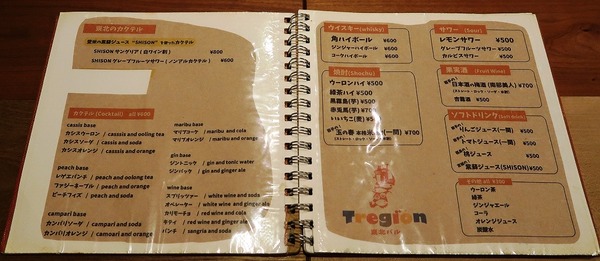 県北のカクテル
"SHISON" を使ったカクテル
SHISON サングリア(白ワイン割) ¥800
SHISON グレープフルーツサワー(ノンアルカクテル) ¥600
カクテル(Cocktail) all ¥600
cassis base
カシスウーロン / cassis and oolong tea
カシスソーダ / cassis and soda
カシスオレンジ / cassis and orange
peach base
レゲエパンチ / peach and oolong tea
ファジーネーブル / peach and orange
ピーチフィズ / peach and soda
campari base
カンパリソーダ / campari and soda
カンパリオレンジ / camoari and orange
maribu base
マリブコーク / maribu and cola
マリブオレンジ / maribu and orange
gin base
ジントニック / gin and tonic water
ジンバック / gin and ginger ale
wine base
スプリッツァー / white wine and soda
オペレーター / white wine and ginger ale
カリモーチョ / red wine and cola
キティ / red wine and ginger ale
パンチ / sangria and soda
ウイスキー(whisky)
角ハイボール ¥600
ジンジャーハイボール ¥600
コークハイボール ¥600
焼酎(Shochu)
ウーロンハイ ¥500
緑茶ハイ ¥500
黒霧島(芋) ¥500
赤兎馬(芋) ¥700
いいちこ(麦) ¥500
¥700
Tregion
県北バル
サワー (Sour)
レモンサワー ¥500
グレープフルーツサワー ¥500
カルピスサワー ¥500
果実酒 (Fruit Wine)
¥700
杏露酒 ¥500
ソフトドリンク (Soft drink)
りんごジュース(一関) ¥500
トマトジュース(一関) ¥500
桃ジュース ¥500
紫蘇ジュース(SHISON) ¥500
その他 all ¥300
ウーロン茶
緑茶
ジンジャエール
コーラ
オレンジジュース
炭酸水